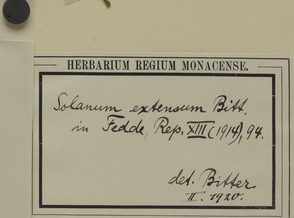 HERBARIUM REGIUM MONACENSE.
Solanum extensum Bitt.
in Fedde, Rep. XIII (1914), 94.
det. Bitter
II. 1920.